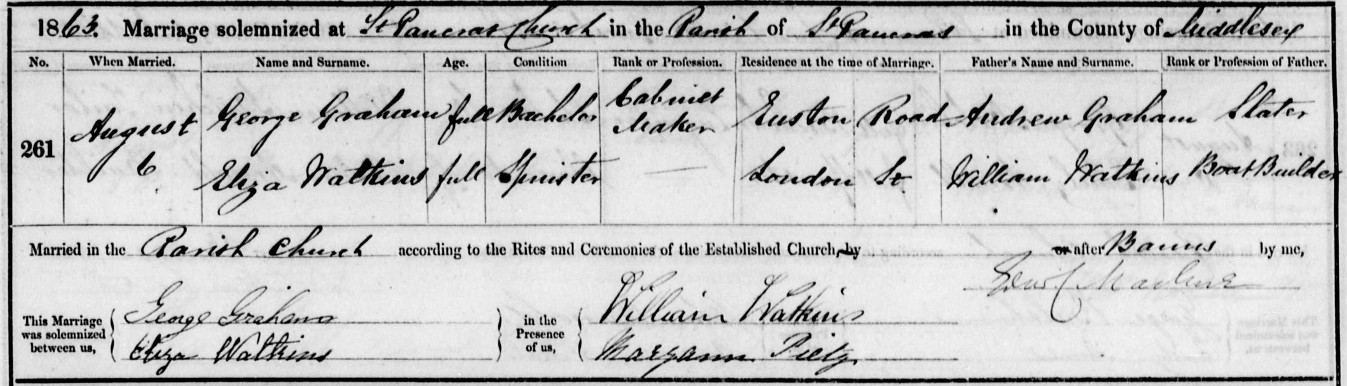 1863. Marriage solemnized at St Pancras Church in the Parish of St Pancras in the County of Middlesex
No. When Married. Name and Surname. Age. Condition Rank or Profession. Residence at the time of Marriage. Father's Name and Surname. Rank or Profession of Father.
261 August 6 George Graham full Bachelor Cabinet Maker Euston Road Andrew Graham Slater
Eliza Watkins full Spinster — London St William Watkins Boat Builder
Married in the Parish Church according to the Rites and Ceremonies of the Established Church, by or after Banns by me,
This Marriage was solemnized between us, George Graham Eliza Watkins in the Presence of us, William Watkins Maryann Pietz